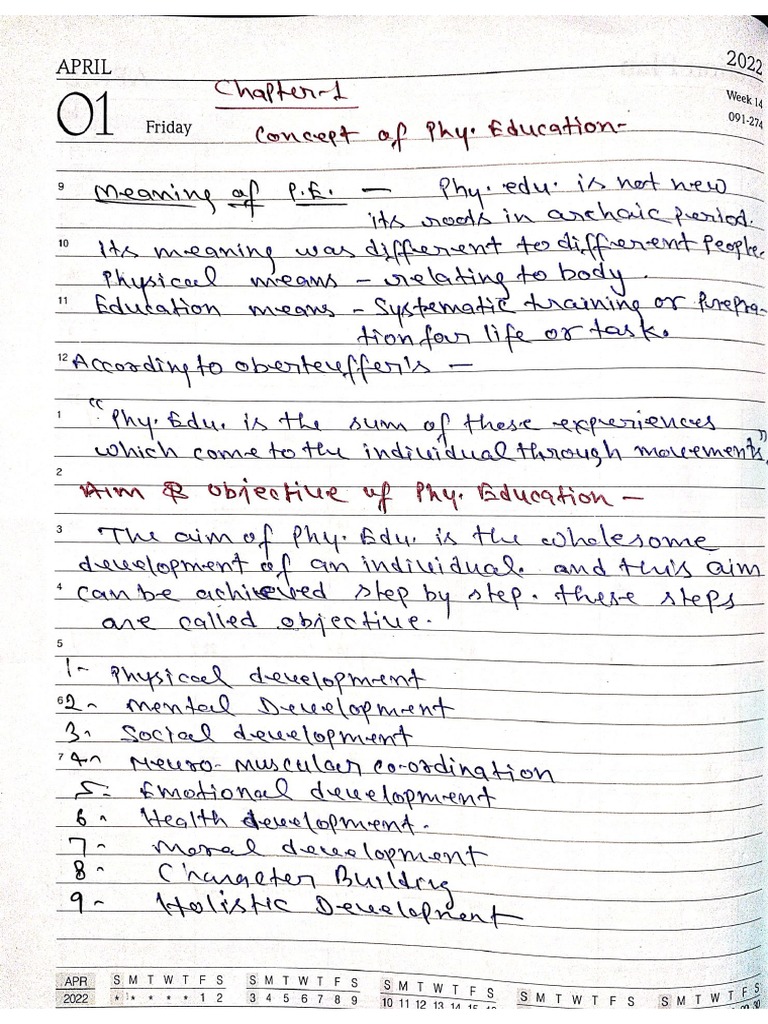 APRIL
2022
01
Friday
Week 14
091-274
Chapter-1
Concept of Phy. Education-
9 Meaning of P.E. — Phy. edu. is not new
its roots in archaic period.
10 Its meaning was different to different people.
Physical means - relating to body.
11 Education means - Systematic training or Prepra-
tion for life or task.
12 According to oberteuffer's —
1 "Phy. Edu. is the sum of these experiences
which come to the individual through movements"
2
Aim & objective of Phy. Education —
3 The aim of Phy. Edu. is the wholesome
development of an individual. and this aim
4 can be achieved step by step. these steps
are called objective.
5
1- Physical development
6 2- Mental Development
3- Social development
7 4- Neuro-muscular co-ordination
5- Emotional development
6- Health development.
7- Moral development
8- Character Building
9- Holistic Development
APR S M T W T F S S M T W T F S S M T W T F S S M T W T F S S M T W T F S
2022 * * * * * 1 2 3 4 5 6 7 8 9 10 11 12 13 14 15